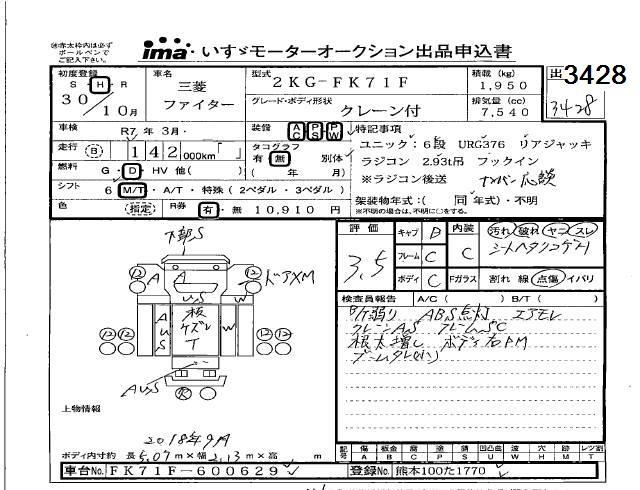 ㊟赤太枠内は必ず
ボールペンで
ご記入下さい。
ima いすゞモーターオークション出品申込書
初度登録 S・H・R 30/10月
車名 三菱 ファイター
型式 2KG-FK71F
グレード・ボディ形状 クレーン付
積載(kg) 1,950
排気量(cc) 7,540
出 3428
3428
車検 R7年3月
走行 B 142000km
装備 AC PS PW
タコグラフ 有・無 別体 (年 月)
特記事項
ユニック:6段 URG376 リアジャッキ
ラジコン 2.93t吊 フックイン
※ラジコン後送 ナンバー応談
燃料 G・D・HV 他( )
シフト 6 M/T・A/T・特殊(2ペダル・3ペダル)
色 (指定) R券 有・無 10,910円
架装物年式:( 同 年式)・不明
※不明の場合は、不明に○をする。
下部S
ドアXM
評価 3.5
キャブ D
フレーム C
ボディ C
内装 C
Fガラス
汚れ 破れ ヤニ スレ
割れ 線 点傷 イバリ
検査員報告 A/C( ) B/T( )
ABS点灯 エアモレ
根太増し ボディ右
上物情報
2018年9月
ボディ内寸約 長 5.07m×幅 2.13m×高 m
記号 傷A 板金B 腐C 塗P 錆S 凹凸曲U 波W 穴H 跡M レンズ割T
車台No. FK71F-600629
登録No. 熊本100た1770